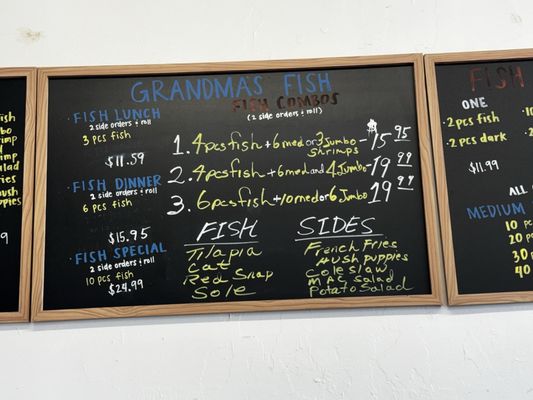 GRANDMA'S FISH
FISH COMBOS
(2 side orders + roll)
· FISH LUNCH
2 side orders + roll
3 pcs fish
$11.59
· FISH DINNER
2 side orders + roll
6 pcs fish
$15.95
· FISH SPECIAL
2 side orders + roll
10 pcs fish
$24.99
1. 4pcsfish+6med or 3Jumbo Shrimps - $15.95
2. 4pcsfish+6med and 4Jumbo - 19.99
3. 6pcsfish+10med or 6 Jumbo 19.99
FISH
Tilapia
Cat
Red Snap
Sole
SIDES
French Fries
Hush puppies
Coleslaw
Mac Salad
Potato Salad
FISH
ONE
· 2 pcs fish
· 2 pcs dark
$11.99
ALL
MEDIUM
10 pc
20 p
30
40